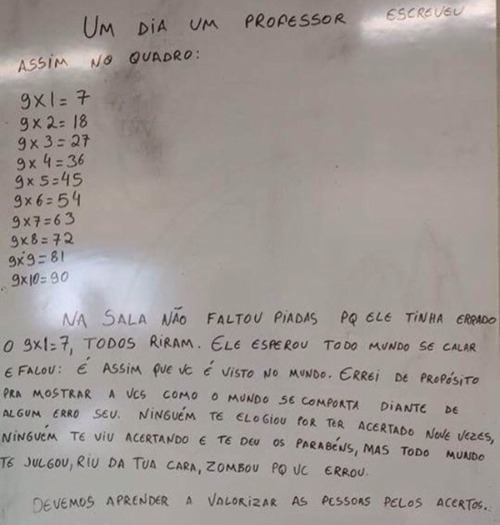 UM DIA UM PROFESSOR ESCREVEU
ASSIM NO QUADRO:
9x1=7
9x2=18
9x3=27
9x4=36
9x5=45
9x6=54
9x7=63
9x8=72
9x9=81
9x10=90
NA SALA NÃO FALTOU PIADAS PQ ELE TINHA ERRADO
O 9x1=7, TODOS RIRAM. ELE ESPEROU TODO MUNDO SE CALAR
E FALOU: É ASSIM QUE VC É VISTO NO MUNDO. ERREI DE PROPÓSITO
PRA MOSTRAR A VCS COMO O MUNDO SE COMPORTA DIANTE DE
ALGUM ERRO SEU. NINGUÉM TE ELOGIOU POR TER ACERTADO NOVE VEZES,
NINGUÉM TE VIU ACERTANDO E TE DEU OS PARABÉNS, MAS TODO MUNDO
TE JULGOU, RIU DA TUA CARA, ZOMBOU PQ VC ERROU.
DEVEMOS APRENDER A VALORIZAR AS PESSOAS PELOS ACERTOS.